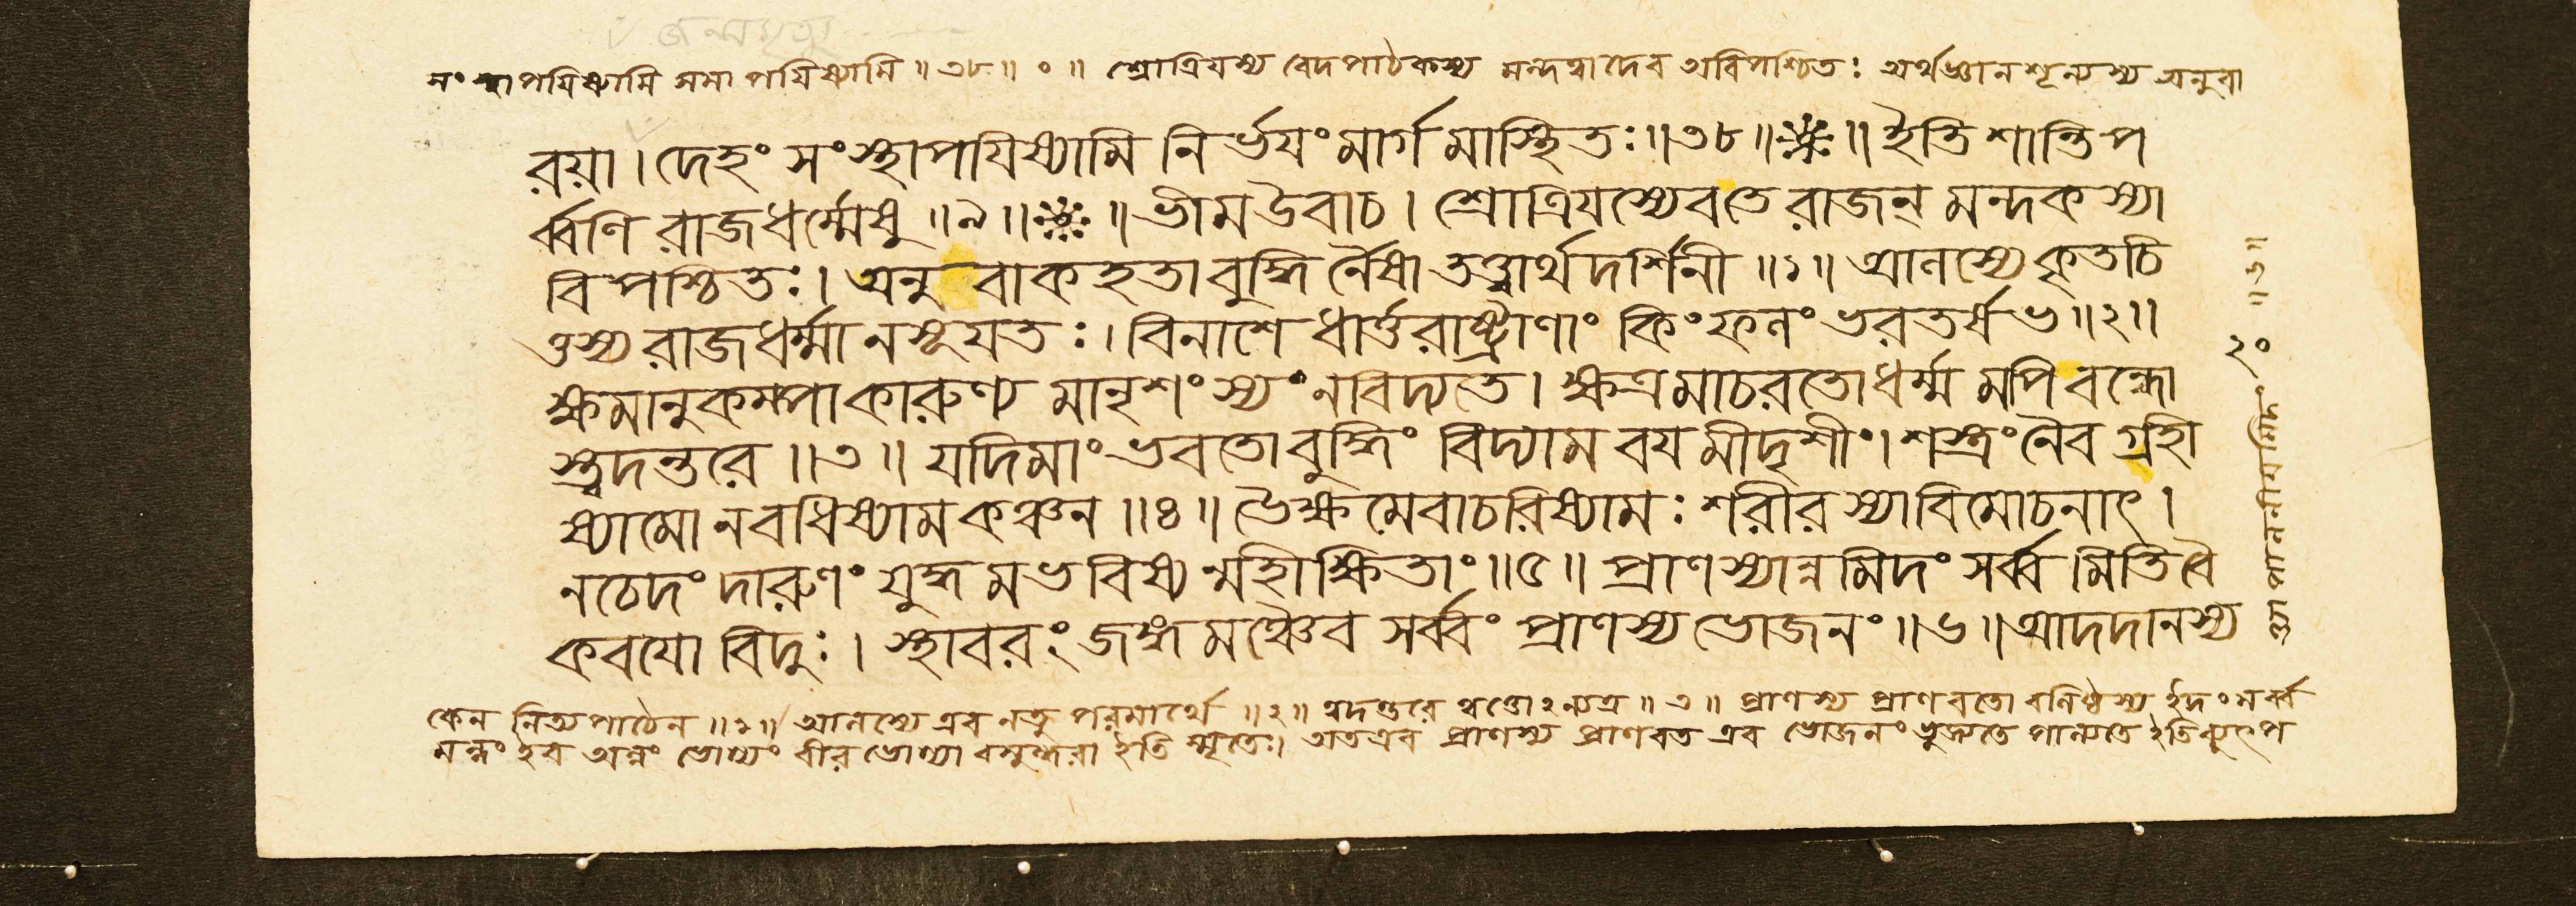 জন্মমৃত্যু
নং স্থাপযিষ্যামি সমাপযিষ্যামি ॥ ৩৮ ॥ ০ ॥ শ্রোত্রিযস্য বেদপাঠকস্য মন্দত্বাদেব অবিপশ্চিতঃ অর্থজ্ঞানশূন্যস্য অনুবা
রয়া । দেহং সংস্থাপযিষ্যামি নির্ভযং মার্গমাস্থিতঃ ॥ ৩৮ ॥ ॥ ইতি শান্তিপ
র্ব্বণি রাজধর্ম্মেষু ॥ ৯ ॥ ॥ ভীম উবাচ । শ্রোত্রিযস্যেব তে রাজন্ মন্দকস্যা
বিপশ্চিতঃ । অনুবাকহতা বুদ্ধির্নৈষা তত্ত্বার্থদর্শিনী ॥ ১ ॥ আলস্যে কৃতচি
ত্তস্য রাজধর্ম্মানসূযতঃ । বিনাশে ধার্ত্তরাষ্ট্রাণাং কিং ফলং ভরতর্ষভ ॥ ২ ॥
ক্ষমানুকম্পা কারুণ্যমানৃশংস্যং ন বিদ্যতে । ক্ষত্রমাচরতো ধর্ম্মমপি বন্ধো
স্ত্বদন্তরে ॥ ৩ ॥ যদিমাং ভবতো বুদ্ধিং বিদ্যাম বযমীদৃশীং । শস্ত্রং নৈব গ্রহী
ষ্যামো ন বধিষ্যাম কঞ্চন ॥ ৪ ॥ ভৈক্ষমেবাচরিষ্যামঃ শরীরস্যাবিমোচনাৎ ।
ন চেদং দারুণং যুদ্ধমভবিষ্যন্মহীক্ষিতাং ॥ ৫ ॥ প্রাণস্যান্নমিদং সর্ব্বমিতি বৈ
কবযো বিদুঃ । স্থাবরং জঙ্গমঞ্চৈব সর্ব্বং প্রাণস্য ভোজনং ॥ ৬ ॥ আদদানস্য
কেন নিত্যপাঠেন ॥ ১ ॥ আলস্যে এব নতু পরমার্থে ॥ ২ ॥ ত্বদন্তরে ত্বত্তোঽন্যত্র ॥ ৩ ॥ প্রাণস্য প্রাণবতো বলিষ্ঠস্য ইদং সর্ব্ব
মন্নং ইব অন্নং ভোগ্যং বীরভোগ্যা বসুন্ধরা ইতি স্মৃতেঃ । অতএব প্রাণস্য প্রাণবত এব ভোজনং ভুজ্যতে পাল্যতে ইতি ব্যুৎপ
ত্ত্যা পালনীযমিদং ॥ ৬ ॥
২০